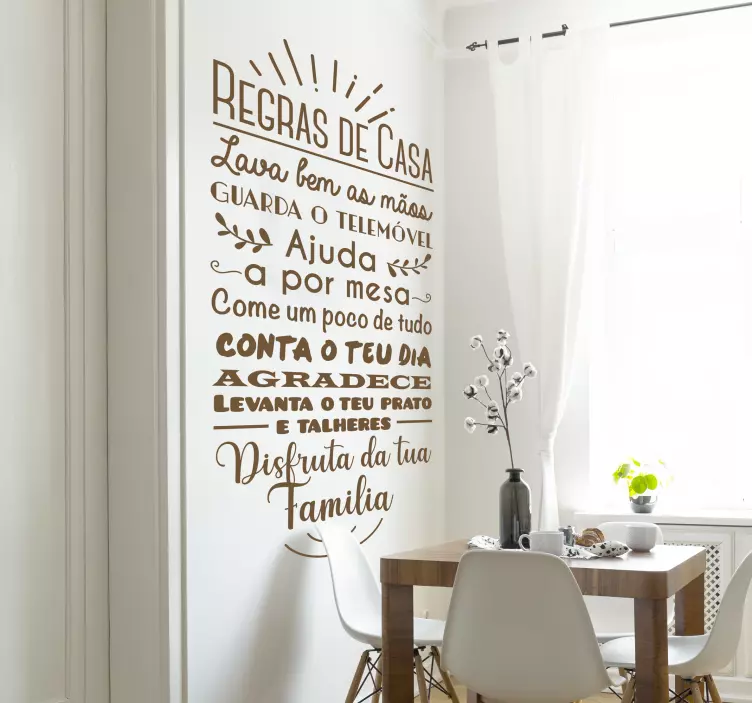 REGRAS DE CASA
Lava bem as mãos
GUARDA O TELEMÓVEL
Ajuda
a por mesa
Come um poco de tudo
CONTA O TEU DIA
AGRADECE
LEVANTA O TEU PRATO
E TALHERES
Disfruta da tua
Familia